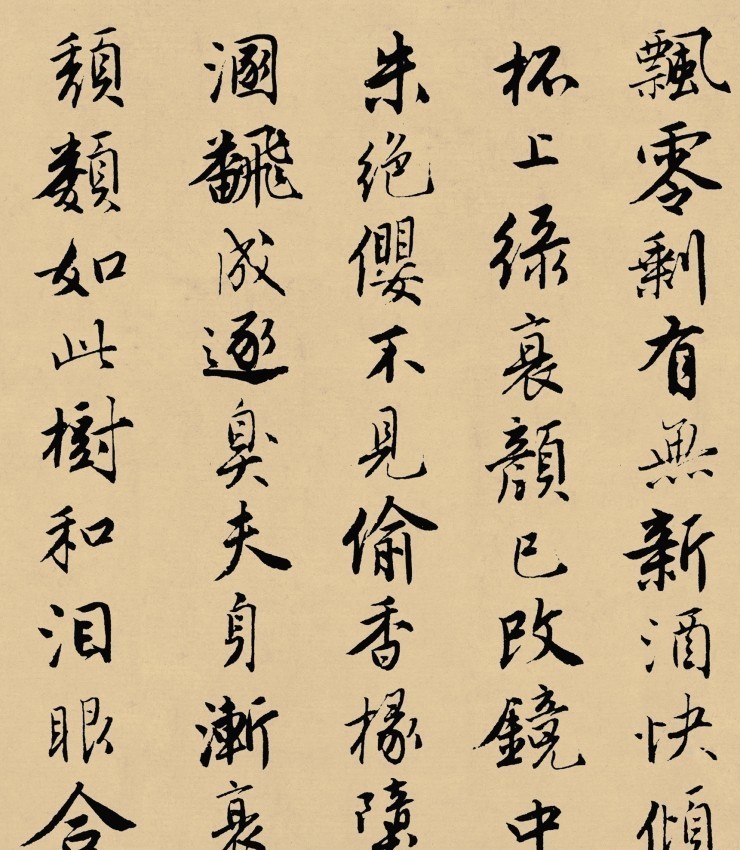 飄零剩有無新酒快傾
杯上綠衰顏已改鏡中
朱絕纓不見偷香掾墮
溷飜成逐臭夫身漸衰
頹類如此樹和泪眼合